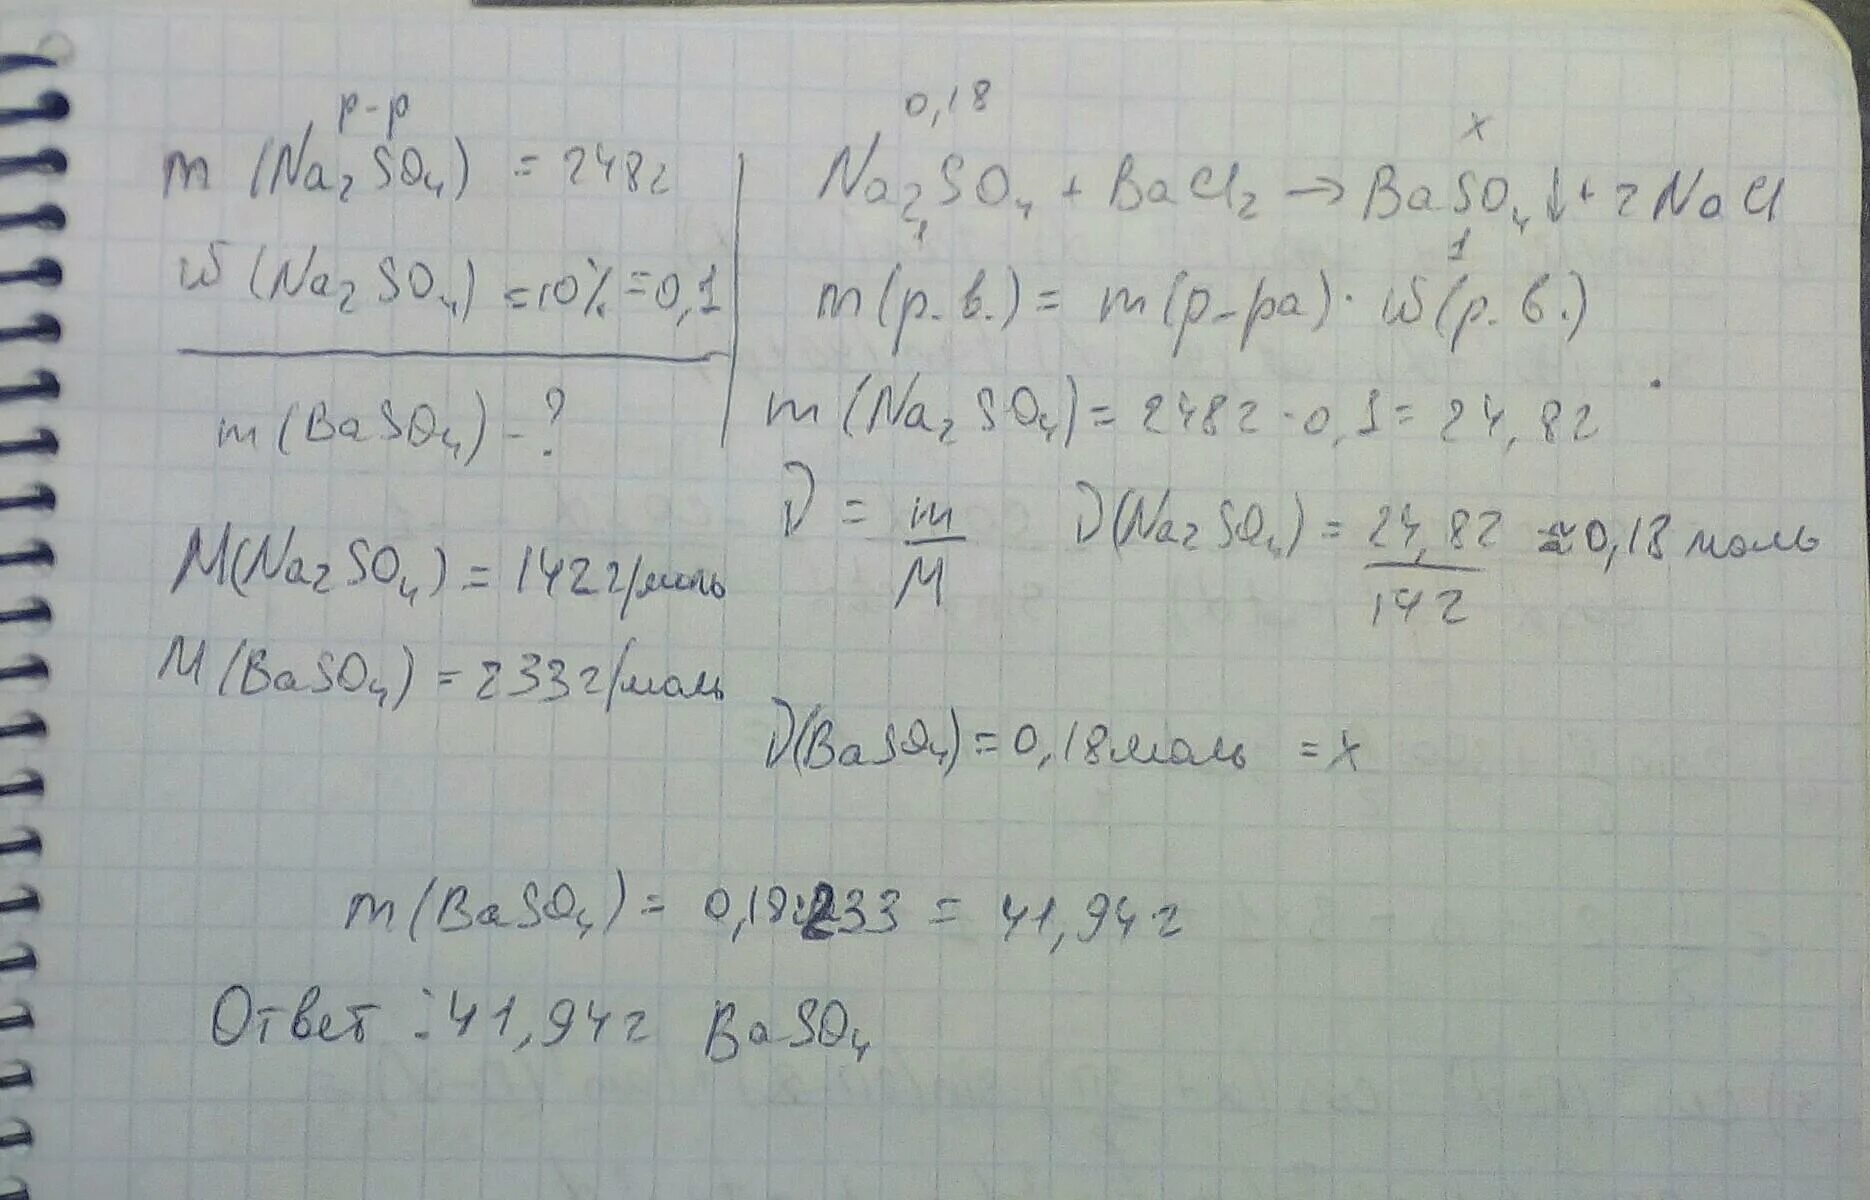 р-р
m (Na2SO4) = 248г
ω (Na2SO4) = 10% = 0,1
m (BaSO4) - ?
M(Na2SO4) = 142 г/моль
M (BaSO4) = 233 г/моль
0,18 x
Na2SO4 + BaCl2 → BaSO4↓ + 2 NaCl
1 1
m (р.в.) = m (р-ра) · ω (р.в.)
m (Na2SO4) = 248г · 0,1 = 24,8г
ν = m/M ν(Na2SO4) = 24,8г/142 ≈ 0,18 моль
ν(BaSO4) = 0,18 моль = x
m (BaSO4) = 0,18·233 = 41,94 г
Ответ : 41,94 г BaSO4